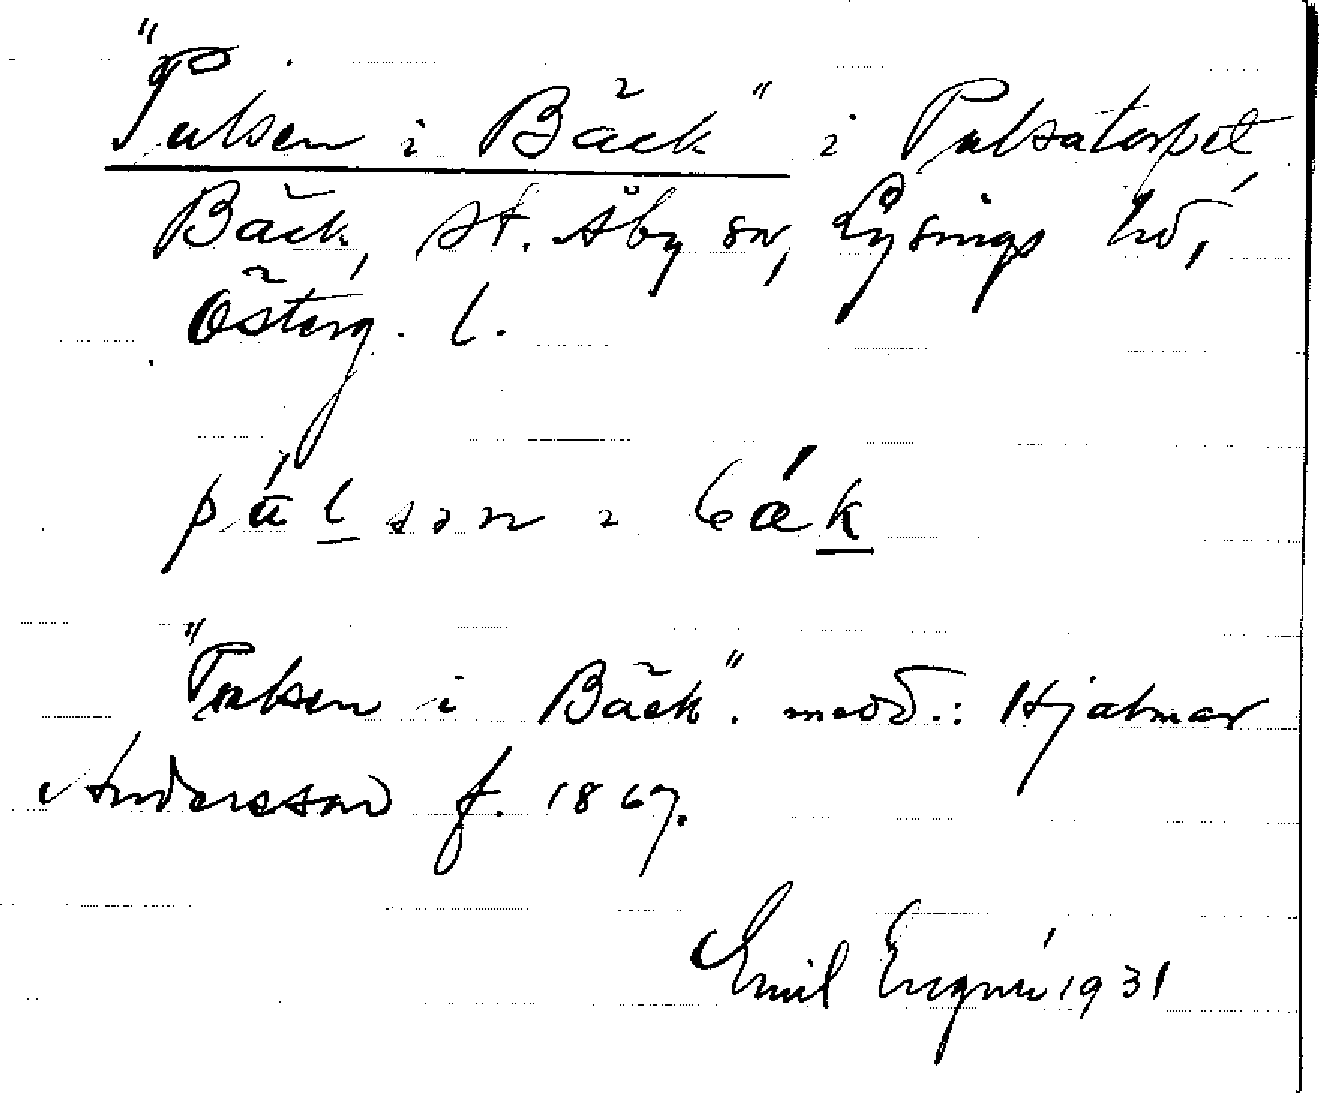 "Pulsen i Bäck" i Pulsatorpet
Bäck, St. Åby sn, Lysings hd,
Österg. l.
pu̇lsən i bák
"Pulsen i Bäck". medd.: Hjalmar
Andersson f. 1867.
Emil Engnér 1931